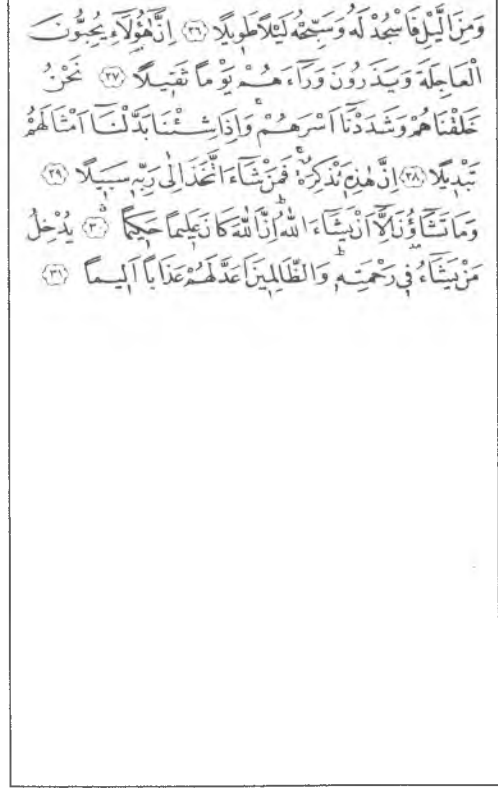 وَمِنَ الَّيْلِ فَاسْجُدْ لَهُ وَسَبِّحْهُ لَيْلًا طَوِيلًا ﴿٢٦﴾ اِنَّ هٰٓؤُلَٓاءِ يُحِبُّونَ
الْعَاجِلَةَ وَيَذَرُونَ وَرَٓاءَهُمْ يَوْماً ثَقِيلًا ﴿٢٧﴾ نَحْنُ
خَلَقْنَاهُمْ وَشَدَدْنَٓا اَسْرَهُمْۚ وَاِذَا شِئْنَا بَدَّلْنَٓا اَمْثَالَهُمْ
تَبْدِيلًا ﴿٢٨﴾ اِنَّ هٰذِهِ تَذْكِرَةٌۚ فَمَنْ شَٓاءَ اتَّخَذَ اِلٰى رَبِّهِ سَبِيلًا ﴿٢٩﴾
وَمَا تَشَٓاؤُ۫نَ اِلَّٓا اَنْ يَشَٓاءَ اللّٰهُۜ اِنَّ اللّٰهَ كَانَ عَلِيماً حَكِيماًۗ ﴿٣٠﴾ يُدْخِلُ
مَنْ يَشَٓاءُ فِي رَحْمَتِهِۜ وَالظَّالِمِينَ اَعَدَّ لَهُمْ عَذَاباً اَلِيماً ﴿٣١﴾